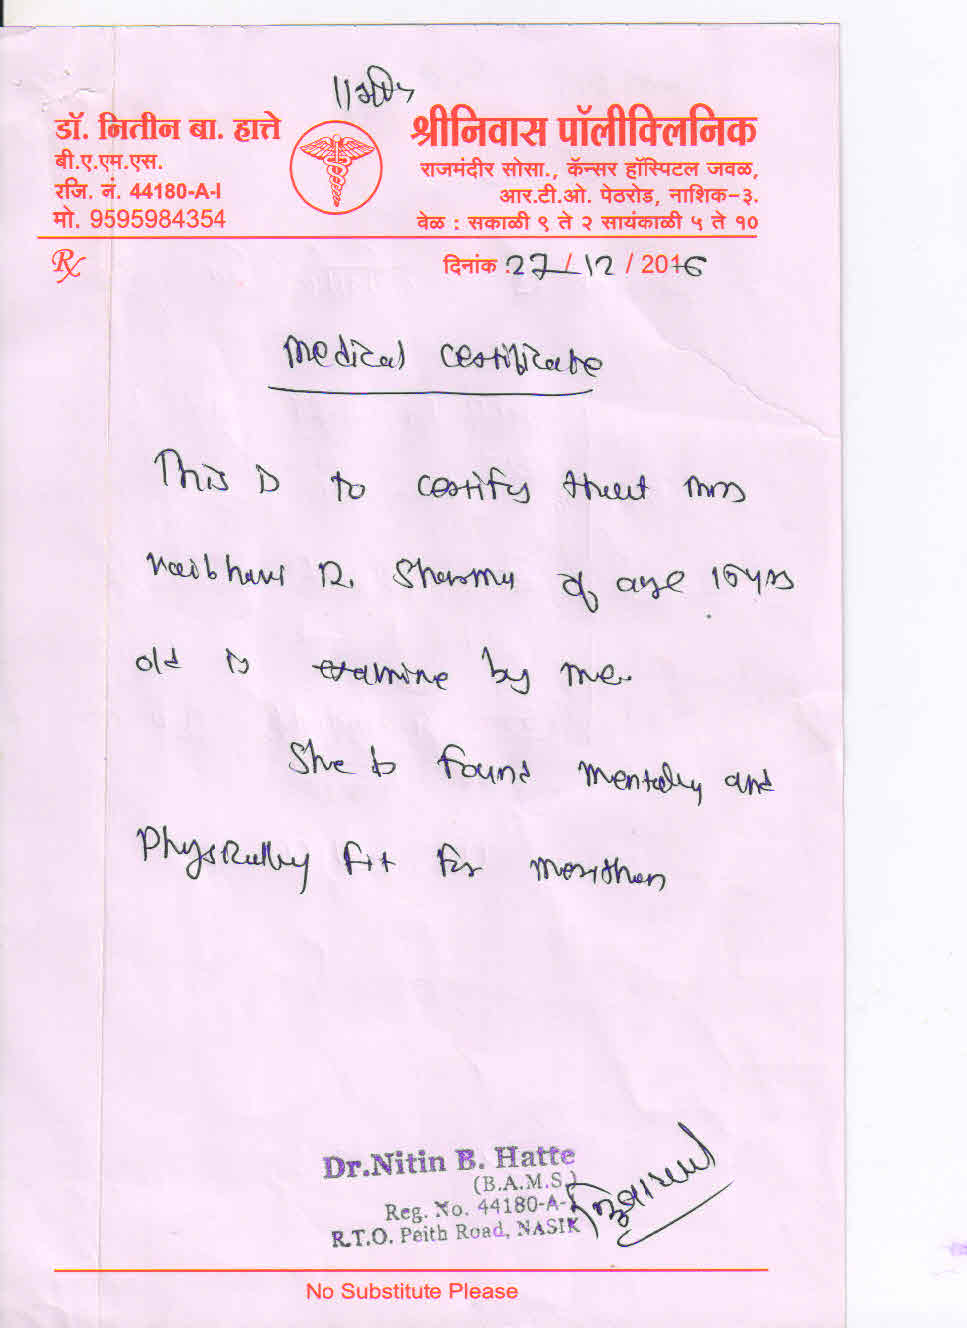 ॥श्री॥
डॉ. नितीन बा. हात्ते
बी.ए.एम.एस.
रजि. नं. 44180-A-I
मो. 9595984354
श्रीनिवास पॉलीक्लिनिक
राजमंदीर सोसा., कॅन्सर हॉस्पिटल जवळ,
आर.टी.ओ. पेठरोड, नाशिक-३.
वेळ : सकाळी ९ ते २ सायंकाळी ५ ते १०
Rx
दिनांक : 27/12/2016
Medical Certificate
This is to certify that Mrs
Vaibhavi R. Sharma of age 15 yrs
old is examine by me.
She is found mentaly and
Physically fit for Marithon
Dr.Nitin B. Hatte
(B.A.M.S.)
Reg. No. 44180-A-
R.T.O. Peith Road, NASIK
No Substitute Please